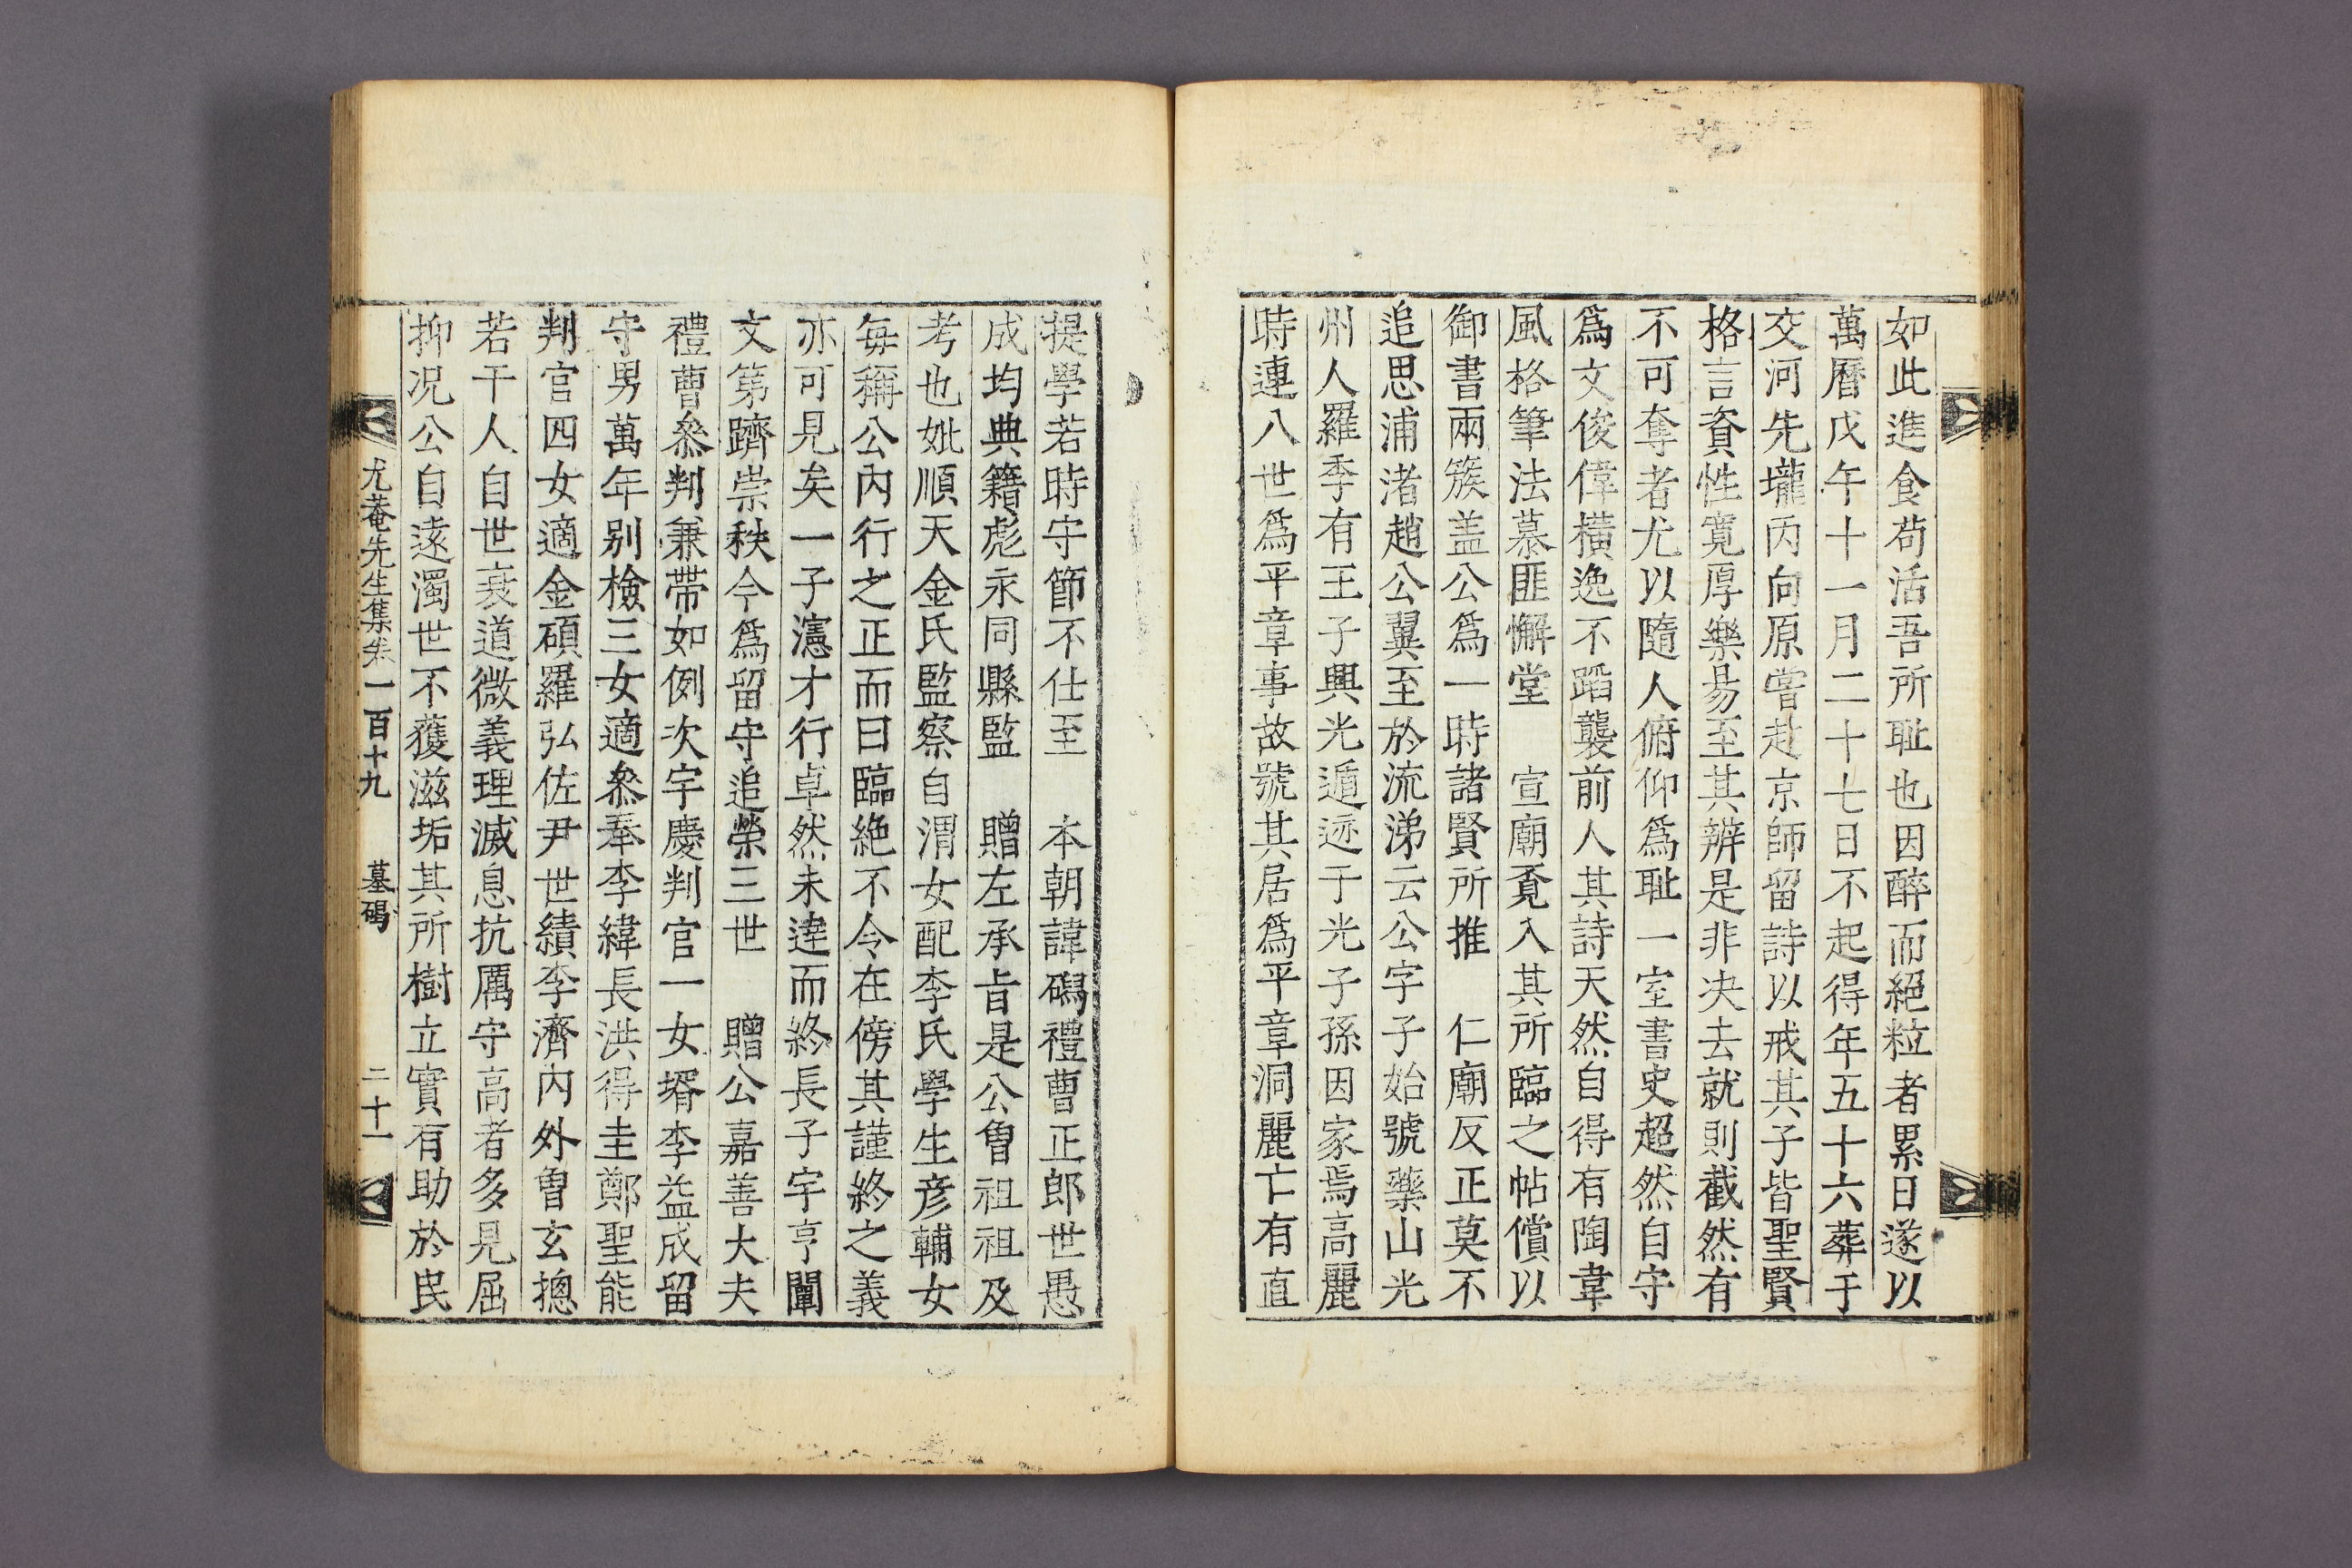 如此進食苟活吾所耻也因醉而絕粒者累日遂以
萬曆戊午十一月二十七日不起得年五十六葬于
交河先壠丙向原嘗赴京師留詩以戒其子皆聖賢
格言資性寬厚樂昜至其辨是非决去就則截然有
不可奪者尤以隨人俯仰爲耻一室書史超然自守
爲文俊偉橫逸不蹈襲前人其詩天然自得有陶韋
風格筆法慕匪懈堂　宣廟覔入其所臨之帖償以
御書兩簇盖公爲一時諸賢所推　仁廟反正莫不
追思浦渚趙公翼至於流涕云公字子始號藥山光
州人羅季有王子興光遁迹于光子孫因家焉高麗
時連八世爲平章事故號其居爲平章洞麗亡有直
提學若時守節不仕至　本朝諱磶禮曹正郎世愚
成均典籍彪永同縣監　贈左承旨是公曾祖祖及
考也妣順天金氏監察自渭女配李氏學生彦輔女
每稱公內行之正而曰臨絶不令在傍其謹終之義
亦可見矣一子瀗才行卓然未達而終長子宇亨闡
文第躋崇秩今爲留守追榮三世　贈公嘉善大夫
禮曹叅判兼帶如例次宇慶判官一女壻李益成留
守男萬年别檢三女適叅奉李緯長洪得圭鄭聖能
判官四女適金碩羅弘佐尹世績李濟內外曾玄摠
若干人自世衰道微義理滅息抗厲守高者多見屈
抑况公自遠濁世不獲滋垢其所樹立實有助於民
尤菴先生集卷一百十九　墓碣　二十一